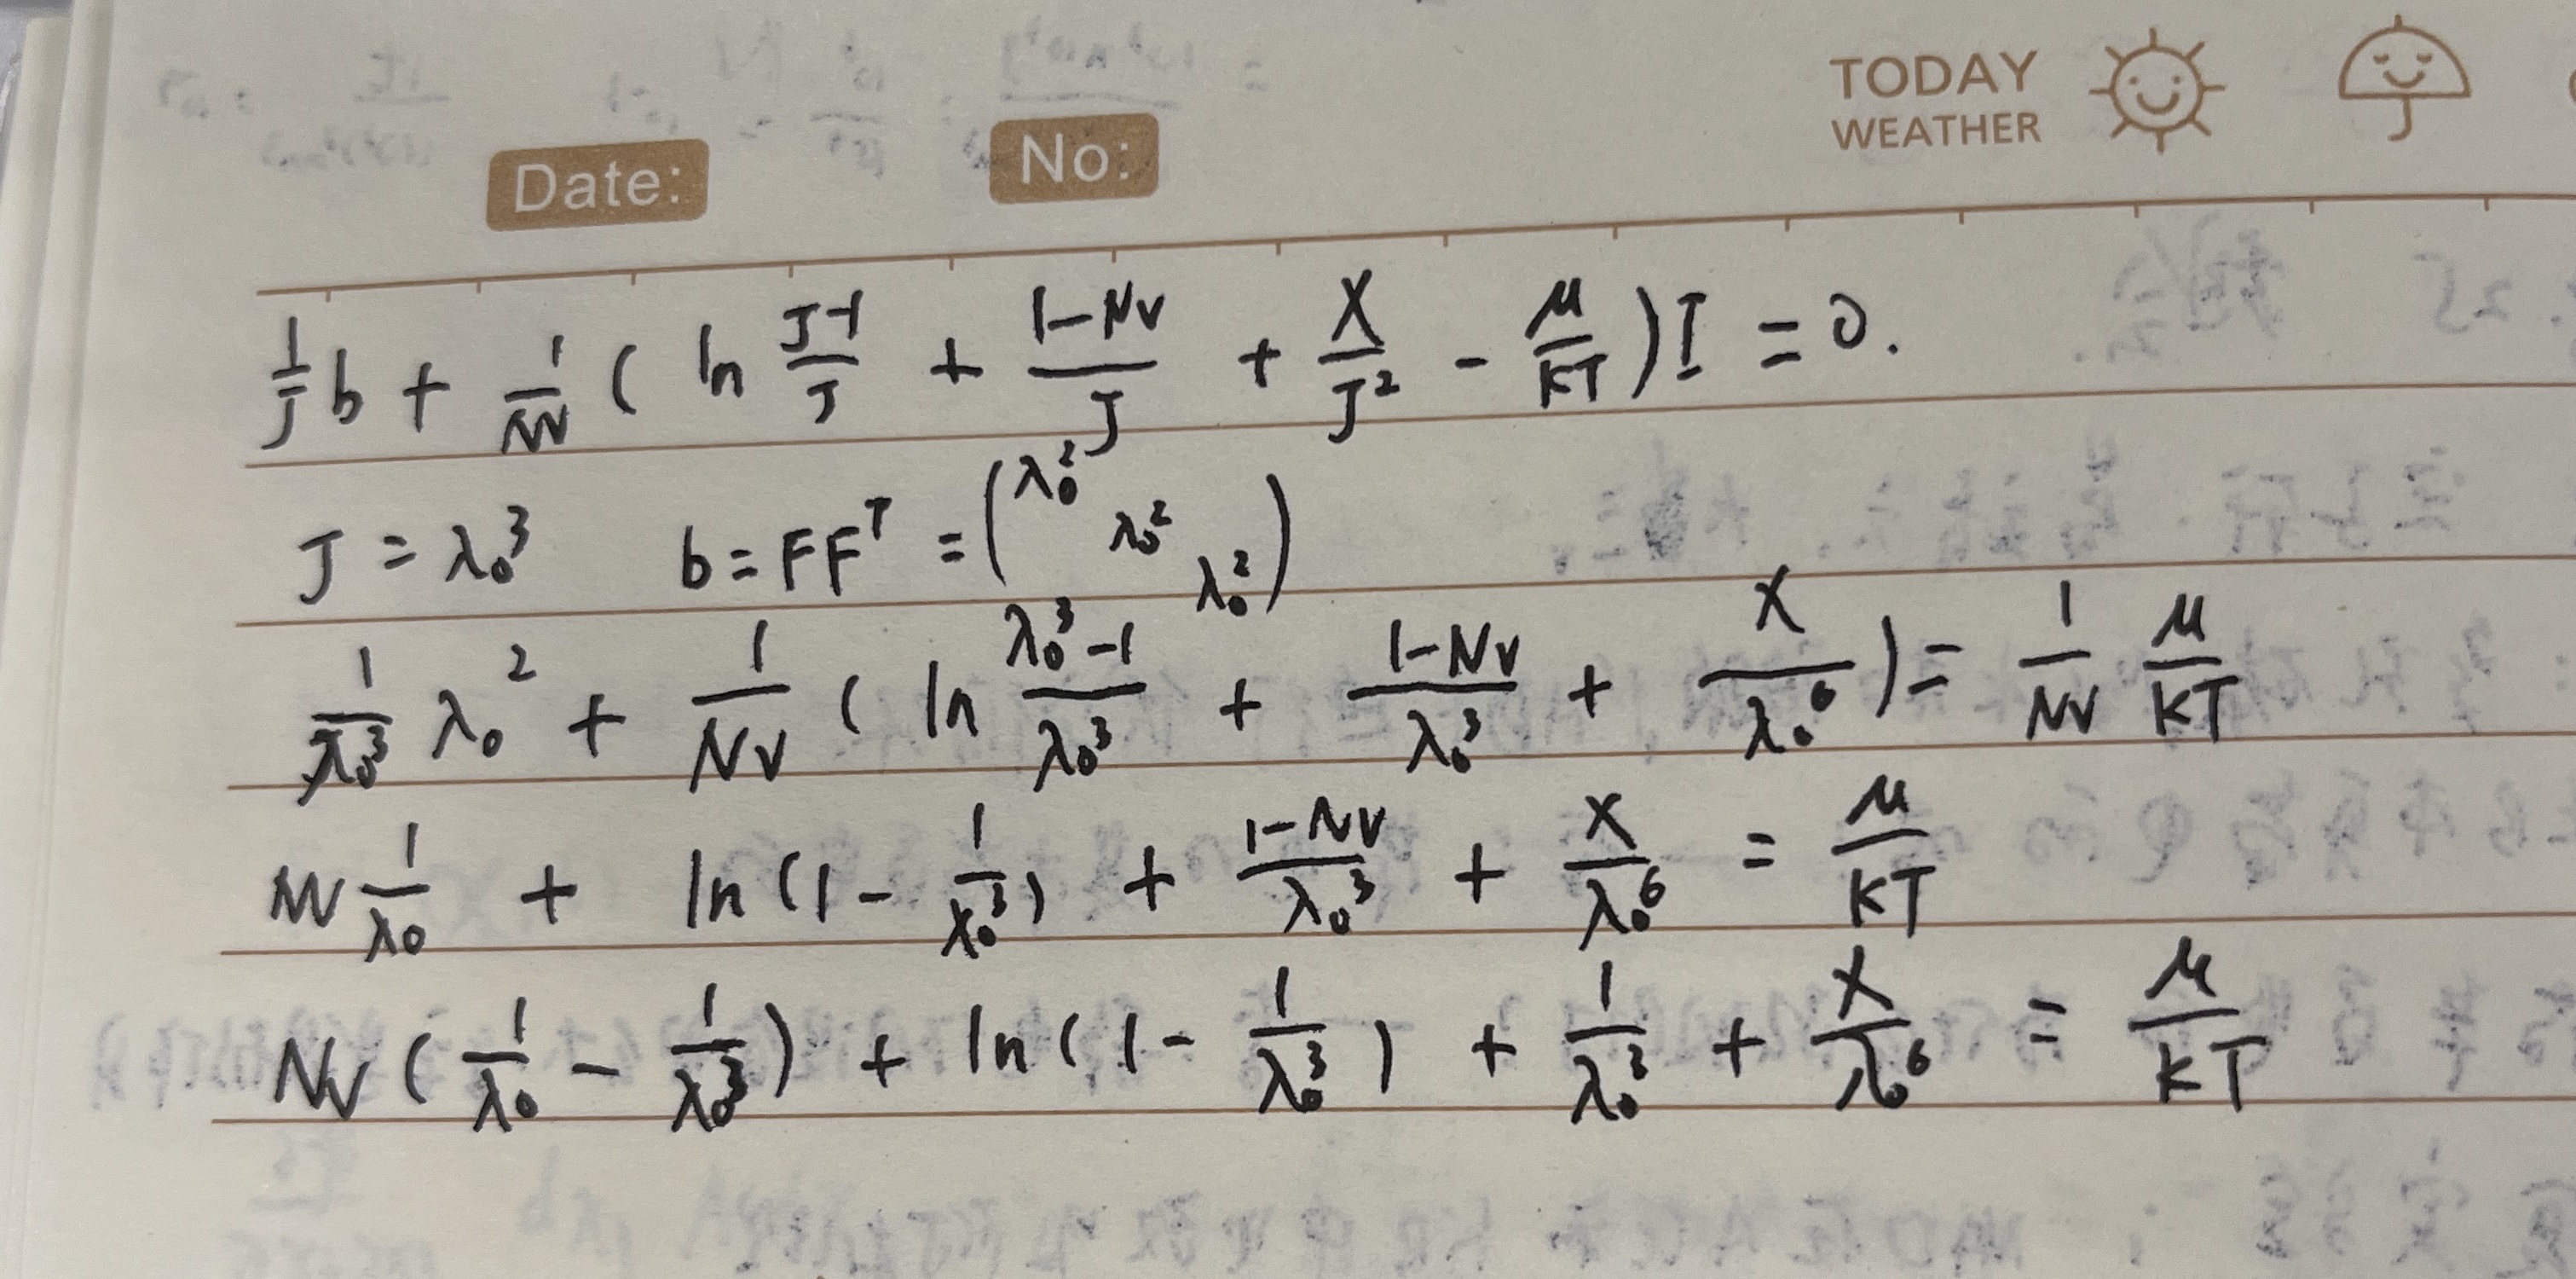 TODAY
WEATHER
Date: No:
\frac{1}{J} b + \frac{1}{Nv} ( ln \frac{J-1}{J} + \frac{1-Nv}{J} + \frac{χ}{J^2} - \frac{μ}{kT} ) I = 0.
J = λ_0^3 b = FF^T = ( λ_0^2 λ_0^2 λ_0^2 )
\frac{1}{λ_0^3} λ_0^2 + \frac{1}{Nv} ( ln \frac{λ_0^3 - 1}{λ_0^3} + \frac{1-Nv}{λ_0^3} + \frac{χ}{λ_0^6} ) = \frac{1}{Nv} \frac{μ}{kT}
Nv \frac{1}{λ_0} + ln ( 1 - \frac{1}{λ_0^3} ) + \frac{1-Nv}{λ_0^3} + \frac{χ}{λ_0^6} = \frac{μ}{kT}
Nv ( \frac{1}{λ_0} - \frac{1}{λ_0^3} ) + ln ( 1 - \frac{1}{λ_0^3} ) + \frac{1}{λ_0^3} + \frac{χ}{λ_0^6} = \frac{μ}{kT}